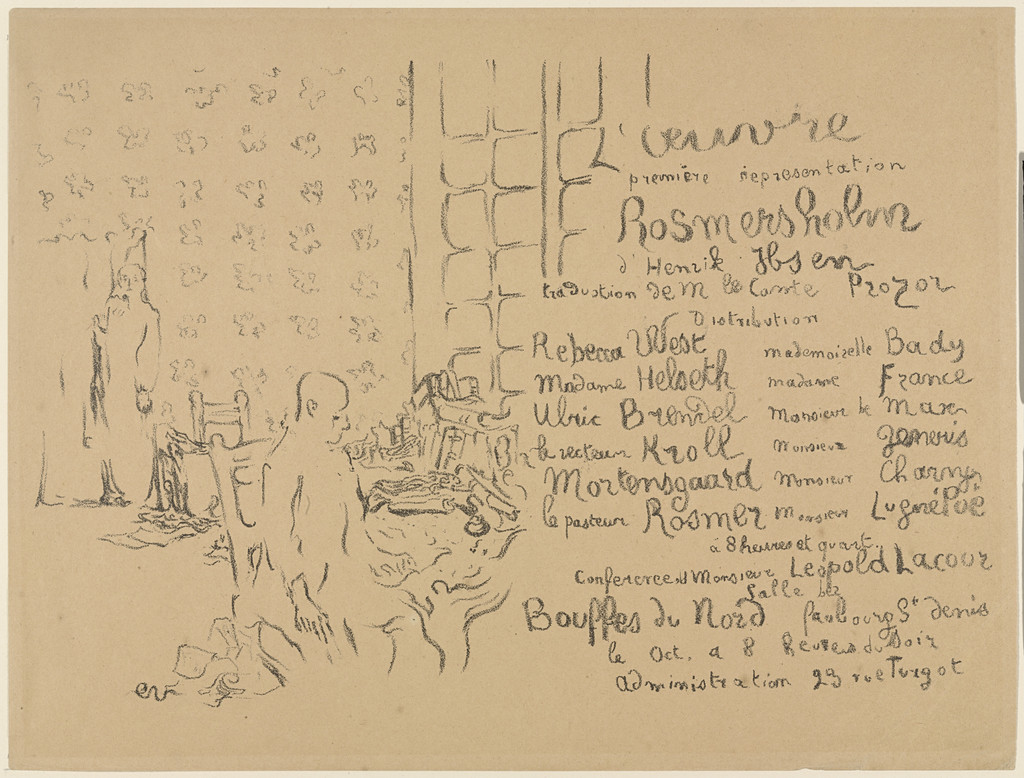 L'œuvre
première représentation
Rosmersholm
d'Henrik Ibsen
traduction de M le Comte Prozor
Distribution
Rebecca West mademoiselle Bady
Madame Helseth madame France
Ulric Brendel Monsieur de Max
le recteur Kroll Monsieur
Mortensgaard Monsieur Charny
le pasteur Rosmer Monsieur LugnéPoë
à 8 heures et quart.
Conference d Monsieur Leopold Lacour
Salle des
Bouffes du Nord faubourg St denis
le Oct, a 8 heures du Soir
administration 23 rue Turgot
ev